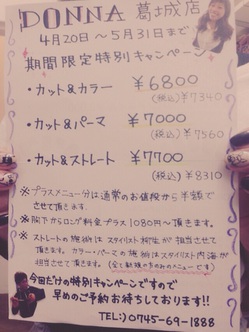 DONNA 葛城店
4月20日～5月31日まで
期間限定特別キャンペーン
・カット&カラー ¥6800
(税込)¥7340
・カット&パーマ ¥7000
(税込)¥7560
・カット&ストレート ¥7700
(税込)¥8310
※プラスメニュー分は通常のお値段から半額で
させて頂きます。
※胸下からロング料金プラス1080円～頂きます。
※ストレートの施術はスタイリスト が担当させて
頂きます。カラー・パーマの施術はスタイリスト内海が
担当させて頂きます。(全て新規の方のみのメニューです)
今回だけの特別キャンペーンですので
早めのご予約お待ちしております!!
TEL:)0745-69-1888